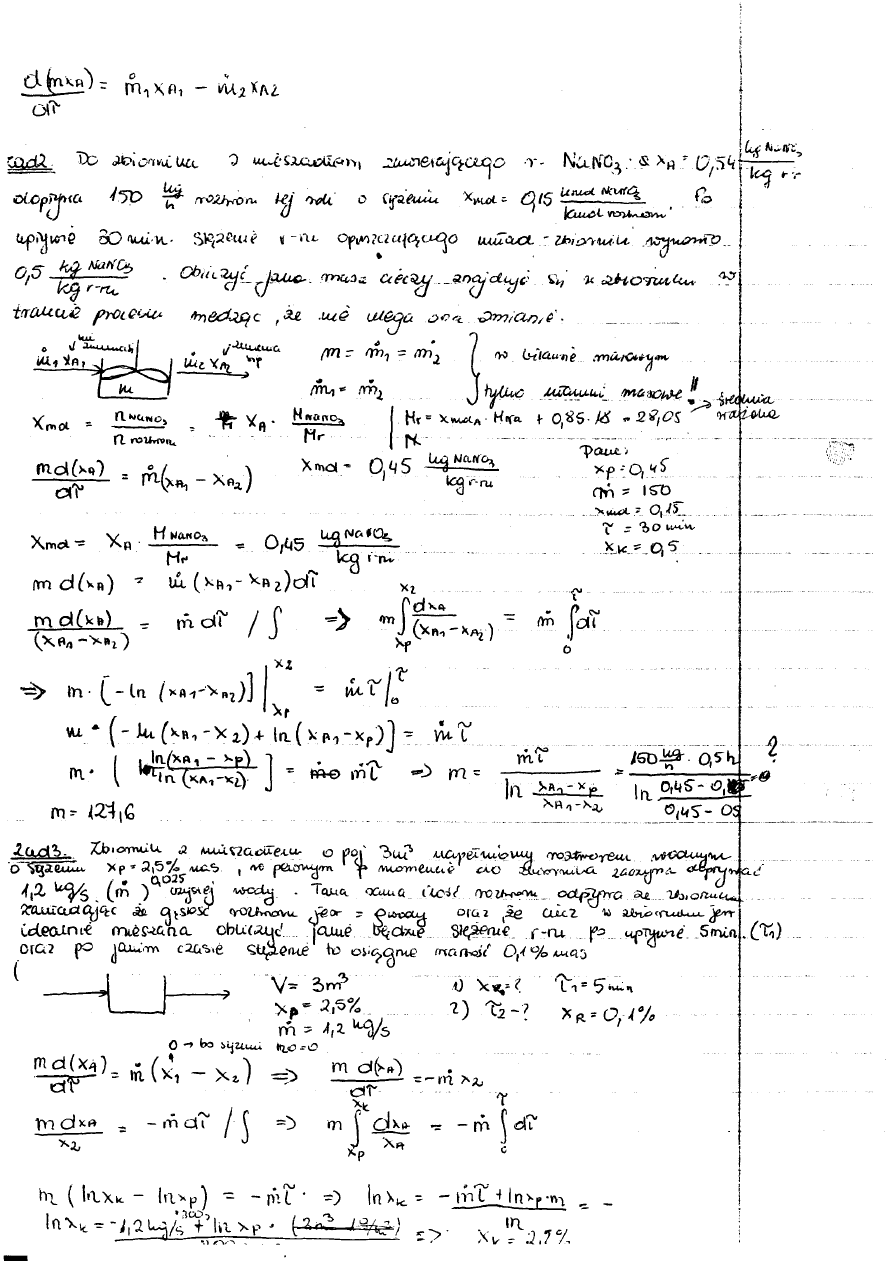 d(mxA)/dτ = ṁ1 xA1 − ṁ2 xA2
zad2. Do zbiornika z mieszadłem zawierającego r- NaNO3 xA = 0,54 kg NaNO3/kg r-r
dopływa 150 kg/h roztworu tej soli o stężeniu xmol = 0,15 kmol NaNO3/kmol roztworu. Po
upływie 30 min. stężenie r-ru opuszczającego układ-zbiornik wynosiło
0,5 kg NaNO3/kg r-ru. Obliczyć jaka masa cieczy znajduje się w zbiorniku w
trakcie procesu wiedząc, że nie ulega ona zmianie.
ṁ1 xA1
ṁ2 xA2
m
m = ṁ1 = ṁ2
ṁ1 = ṁ2
w bilansie masowym
tylko ułamki masowe!!
xmol = n NaNO3/n roztworu = xA · M NaNO3/Mr
Mr = xmolA · MNa + 0,85·18 = 28,05 → średnia ważona
m d(xA)/dτ = ṁ(xA1 − xA2)
xmol = 0,45 kg NaNO3/kg r-ru
Dane:
xp = 0,45
ṁ = 150
xmol = 0,15
τ = 30 min
xK = 0,5
xmol = xA · M NaNO3/Mr = 0,45 kg NaNO3/kg r-ru
m d(xA) = ṁ (xA1 − xA2)dτ
m d(xA)/(xA1 − xA2) = ṁ dτ / ∫ ⇒ m ∫xp^x2 dxA/(xA1 − xA2) = ṁ ∫0^τ dτ
⇒ m · [−ln (xA1 − xA2)] |xp^x2 = ṁ τ |0^τ
m · (−ln (xA1 − x2) + ln (xA1 − xp)] = ṁ τ
m · [ ln(xA1 − xp)/ln(xA1 − x2) ] = ṁτ ⇒ m = ṁτ/ln (xA1 − xp)/(xA1 − x2) = 150 kg/h · 0,5h / ln ?
m = 127,6
Zad3. Zbiornik z mieszadłem o poj 3m³ napełniony roztworem wodnym
o stężeniu xp = 2,5% mas, w pewnym momencie do zbiornika zaczyna dopływać
0,025
1,2 kg/s (ṁ) czystej wody. Taka sama ilość roztworu odpływa ze zbiornika
zakładając że gęstość roztworu jest = ρ wody oraz, że ciecz w zbiorniku jest
idealnie mieszana obliczyć jakie będzie stężenie r-ru po upływie 5min. (τ1)
oraz po jakim czasie stężenie to osiągnie wartość 0,1% mas
V = 3m³ 1) xK = ? τ1 = 5 min
xp = 2,5% 2) τ2 − ? xK = 0,1%
ṁ = 1,2 kg/s
0 → bo stężenie H2O = 0
m d(xA)/dτ = ṁ (x1 − x2) ⇒ m d(xA)/dτ = −ṁ x2
m dxA/x2 = −ṁ dτ / ∫ ⇒ m ∫xp^xk dxA/xA = −ṁ ∫0^τ dτ
m (ln xK − ln xp) = −ṁτ ⇒ ln xK = −ṁτ + ln xp·m / m = −
ln xK = −1,2 kg/s · 300s + ln xp · ⇒ xK = 2,5%